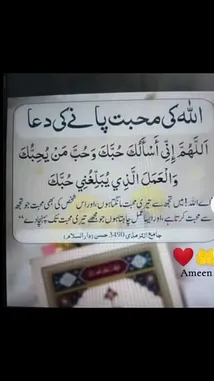 اللہ کی محبت پانے کی دعا
اَللّٰهُمَّ إِنِّي أَسْأَلُكَ حُبَّكَ وَحُبَّ مَنْ يُحِبُّكَ
وَالْعَمَلَ الَّذِي يُبَلِّغُنِي حُبَّكَ
اے اللہ! میں تجھ سے تیری محبت مانگتا ہوں، اور اس شخص کی بھی محبت جو تجھ
سے محبت کرتا ہے، اور ایسا عمل چاہتا ہوں جو مجھے تیری محبت تک پہنچا دے“
جامع الترمذی 3490 حسن (دارالسلام)
❤️🤲
Ameen